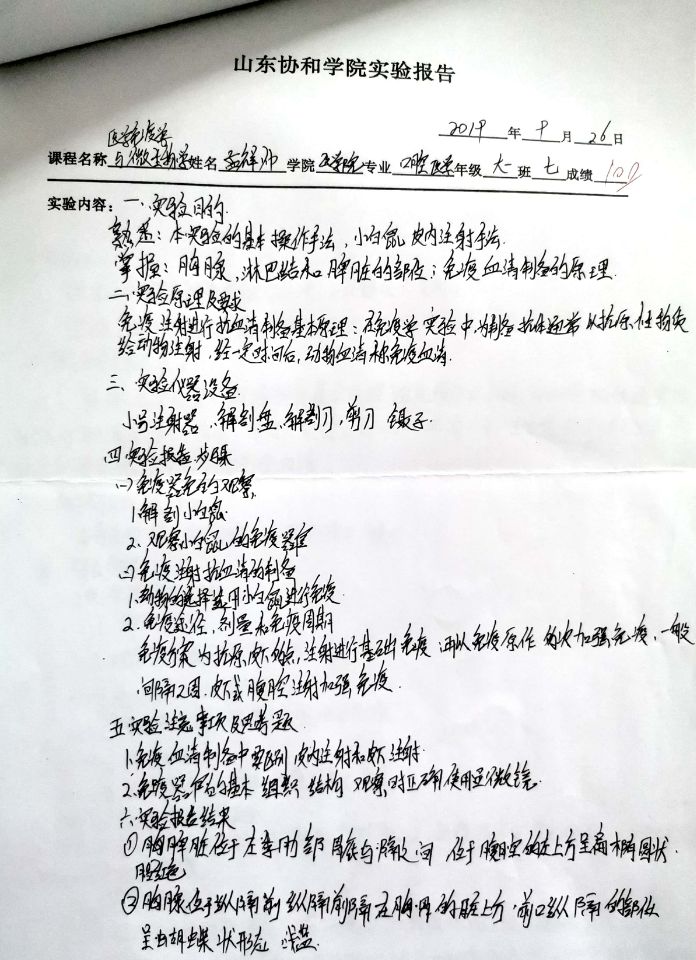 山东协和学院实验报告
2019 年 9 月 26 日
医学免疫学
课程名称 与微生物学 姓名 学院 医学院 专业 口腔医学 年级 大一 班 七 成绩 100
实验内容：一、实验目的
熟悉：本实验的基本操作手法，小白鼠皮内注射手法.
掌握：胸腺，淋巴结和脾脏的部位；免疫血清制备的原理.
二、实验原理及要求
免疫注射进行抗血清制备基本原理：在免疫学实验中,为制备抗体通常以抗原性物质
给动物注射，经一定时间后,动物血清称免疫血清.
三、实验仪器设备
小号注射器、解剖盘、解剖刀,剪刀 镊子.
四.实验报告步骤
(一)免疫器官的观察
1.解剖小白鼠
2.观察小白鼠的免疫器官
(二)免疫注射抗血清的制备
1.动物的选择选用小白鼠进行免疫
2.免疫途径，剂量和免疫周期
免疫方案为抗原,皮下多点,注射进行基础免疫 再以免疫原作 两次加强免疫，一般
间隔2周.皮下或腹腔注射加强免疫.
五.实验注意事项及思考题
1.免疫血清制备中要区别皮内注射和皮下注射.
2.免疫器官的基本组织结构 观察时正确使用显微镜.
六.实验报告结果
①胸脾脏位于左季肋部 胃底与膈之间 位于腹腔的左上方呈扁椭圆状
暗红色
②胸腺位于纵隔前 纵隔前 的部位
呈 胡蝶状形态